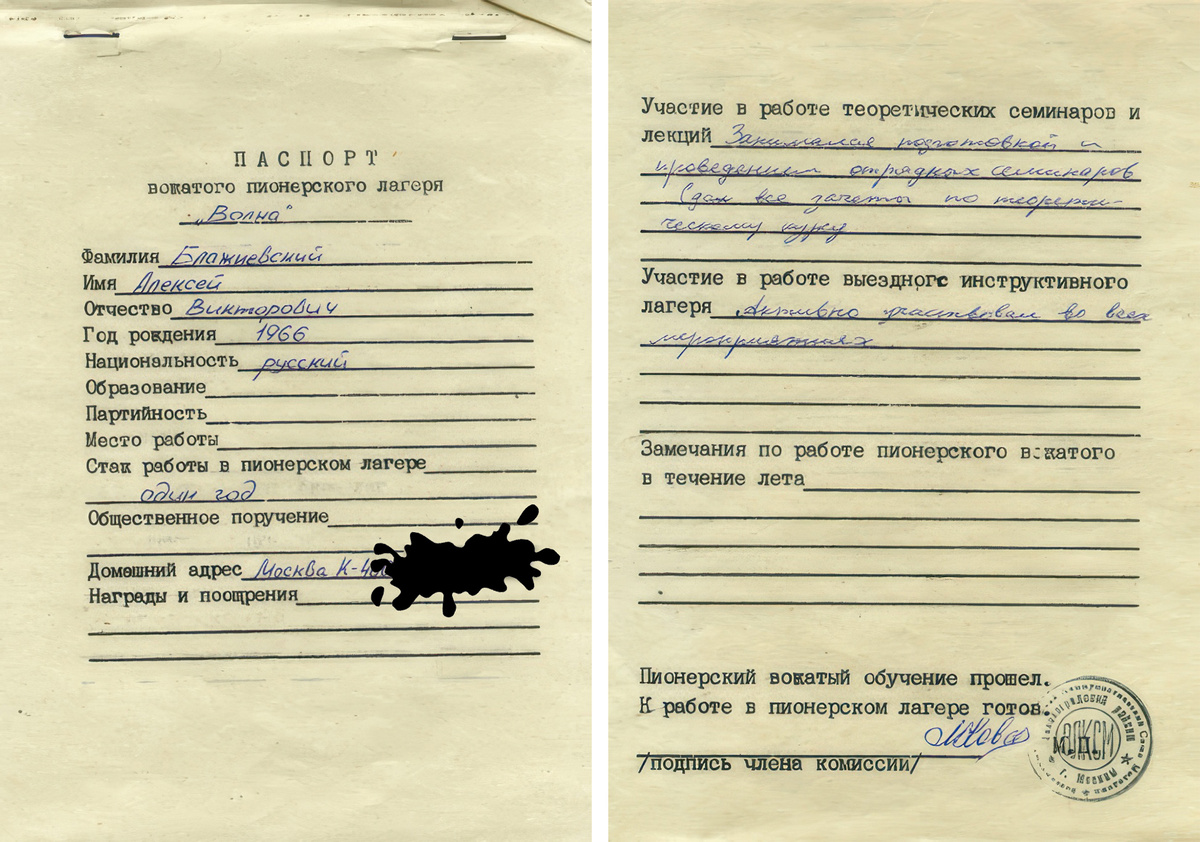 ПАСПОРТ
вожатого пионерского лагеря
„Волна“
Фамилия Блажиевский
Имя Алексей
Отчество Викторович
Год рождения 1966
Национальность русский
Образование
Партийность
Место работы
Стаж работы в пионерском лагере
один год
Общественное поручение
Домашний адрес Москва К-4
Награды и поощрения
Участие в работе теоретических семинаров и
лекций Занимался подготовкой и
проведением отрядных семинаров
Сдал все зачеты по теорети-
ческому курсу
Участие в работе выездного инструктивного
лагеря Активно участвовал во всех
мероприятиях
Замечания по работе пионерского вожатого
в течение лета
Пионерский вожатый обучение прошел.
К работе в пионерском лагере готов.
М.П.
/подпись члена комиссии/
ВЛКСМ
г. Москвы